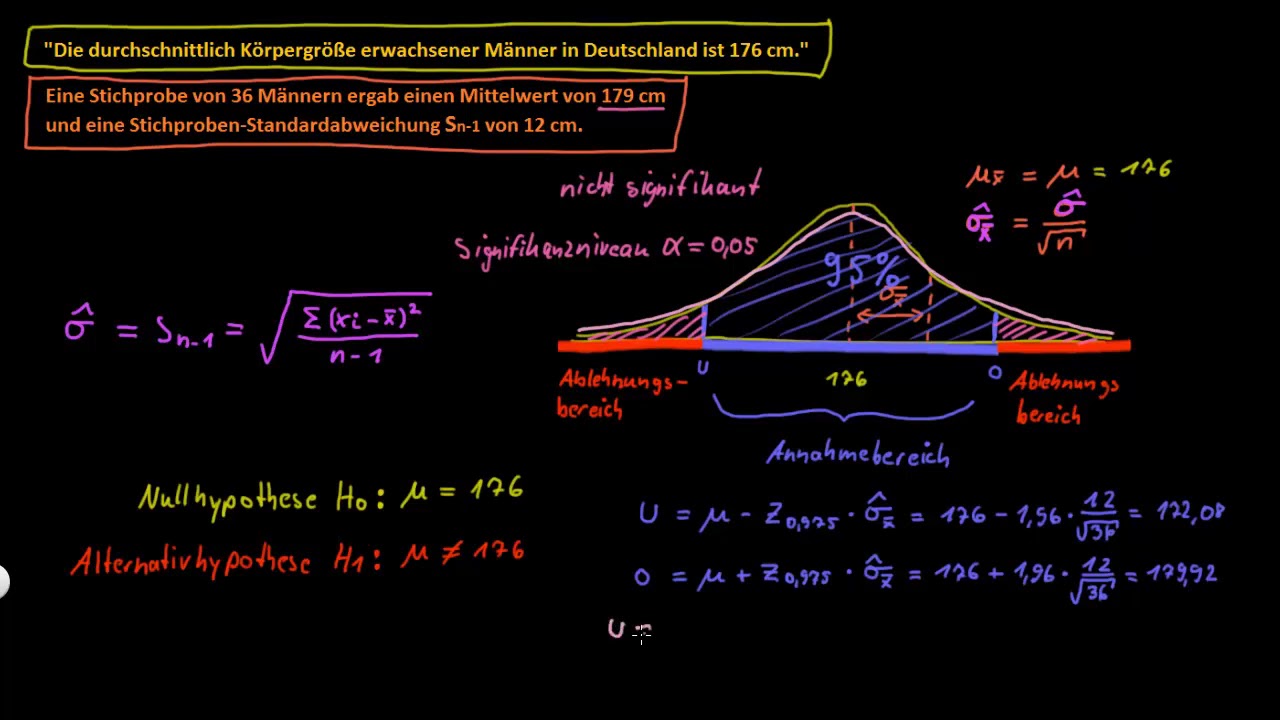 "Die durchschnittlich Körpergröße erwachsener Männer in Deutschland ist 176 cm."
Eine Stichprobe von 36 Männern ergab einen Mittelwert von 179 cm
und eine Stichproben-Standardabweichung Sn-1 von 12 cm.
nicht signifikant
Signifikanzniveau α = 0,05
μx̄ = μ = 176
σ̂x̄ = σ̂/√n
95%
σx̄
σ̂ = Sn-1 = √(Σ(xi - x̄)²/(n-1))
U
176
O
Ablehnungs-
bereich
Ablehnungs
bereich
Annahmebereich
Nullhypothese H0: μ = 176
Alternativhypothese H1: μ ≠ 176
U = μ - Z0,975 · σ̂x̄ = 176 - 1,96 · 12/√36 = 172,08
O = μ + Z0,975 · σ̂x̄ = 176 + 1,96 · 12/√36 = 179,92
U =